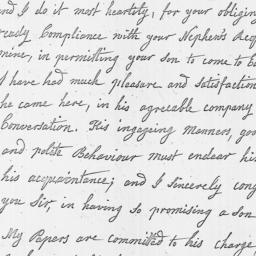 and I do it most heartoly, for your obliging
ready Compliance with your Nephew's Req
mine, in permitting your son to come to
I have had much pleasure and Satisfaction
he came here, in his agreable company
Conversation. His ingaging Manners, goo
and polite Behaviour must endear hi
his acquaintance; and I sincerely cong
you Sir, in having so promising a son
My Papers are committed to his charge